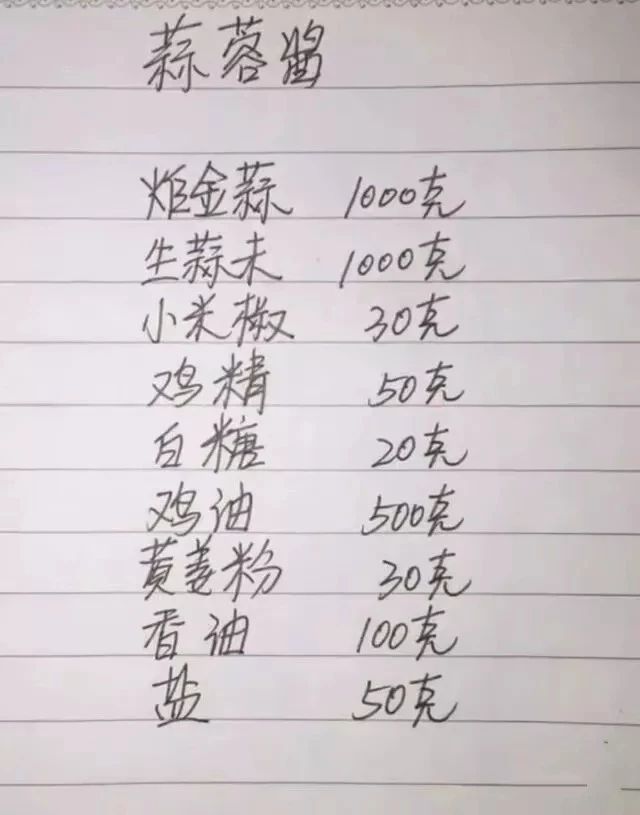 蒜蓉酱
炸金蒜 1000克
生蒜未 1000克
小米椒 30克
鸡精 50克
白糖 20克
鸡油 500克
黄姜粉 30克
香油 100克
盐 50克